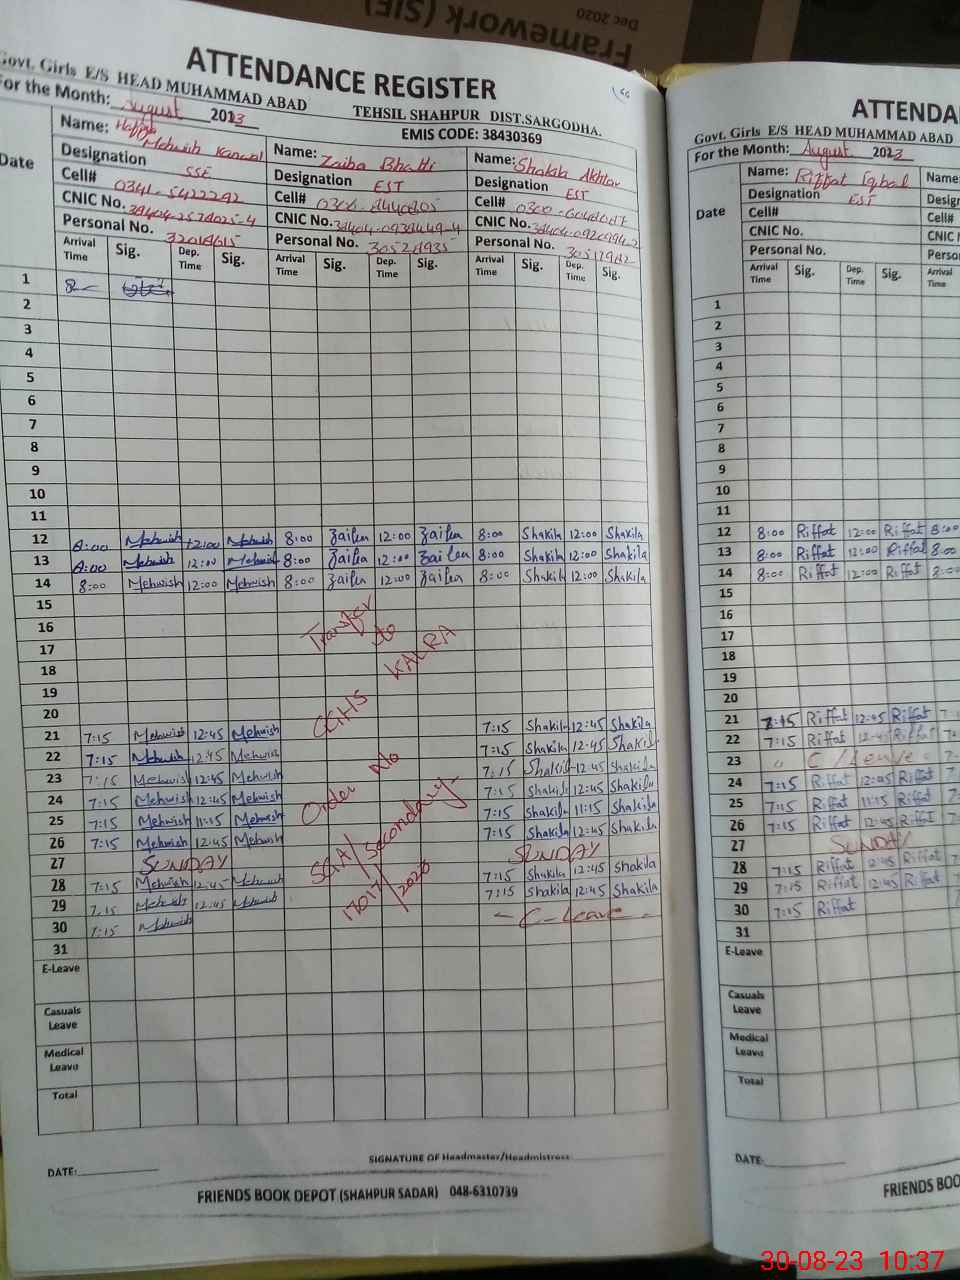 Framework (SIF)
Dec 2020
ATTENDANCE REGISTER
Govt. Girls E/S HEAD MUHAMMAD ABAD TEHSIL SHAHPUR DIST.SARGODHA.
For the Month: August 2023 EMIS CODE: 38430369
Date
Name: Hafiza Mehwish Kanwal Name: Zaiba Bhatti Name: Shakila Akhtar
Designation SSE Designation EST Designation EST
Cell# 0341-5422292 Cell# Cell#
CNIC No. CNIC No. CNIC No.
Personal No. Personal No. Personal No.
Arrival Time Sig. Dep. Time Sig. Arrival Time Sig. Dep. Time Sig. Arrival Time Sig. Dep. Time Sig.
1 8
2
3
4
5
6
7
8
9
10
11
12 8:00 Mehwish 12:00 Mehwish 8:00 Zaiba 12:00 Zaiba 8:00 Shakila 12:00 Shakila
13 8:00 Mehwish 12:00 Mehwish 8:00 Zaiba 12:00 Zaiba 8:00 Shakila 12:00 Shakila
14 8:00 Mehwish 12:00 Mehwish 8:00 Zaiba 12:00 Zaiba 8:00 Shakila 12:00 Shakila
15
16
17
18
19
20
21 7:15 Mehwish 12:45 Mehwish 7:15 Shakila 12:45 Shakila
22 7:15 Mehwish 12:45 Mehwish 7:15 Shakila 12:45 Shakila
23 7:15 Mehwish 12:45 Mehwish 7:15 Shakila 12:45 Shakila
24 7:15 Mehwish 12:45 Mehwish 7:15 Shakila 12:45 Shakila
25 7:15 Mehwish 11:15 Mehwish 7:15 Shakila 11:15 Shakila
26 7:15 Mehwish 12:45 Mehwish 7:15 Shakila 12:45 Shakila
27 SUNDAY SUNDAY
28 7:15 Mehwish 12:45 Mehwish 7:15 Shakila 12:45 Shakila
29 7:15 Mehwish 12:45 Mehwish 7:15 Shakila 12:45 Shakila
30 7:15 Mehwish - C-Leave -
31
Transfer to
GGHS KALRA
Order No
SEA/Secondary
17017/2023
E-Leave
Casuals Leave
Medical Leava
Total
DATE:
SIGNATURE OF Headmaster/Headmistress
FRIENDS BOOK DEPOT (SHAHPUR SADAR) 048-6310739
ATTENDA
Govt. Girls E/S HEAD MUHAMMAD ABAD
For the Month: August 2023
Date
Name: Riffat Iqbal Name:
Designation EST Desig
Cell# Cell#
CNIC No. CNIC
Personal No. Perso
Arrival Time Sig. Dep. Time Sig. Arrival Time
1
2
3
4
5
6
7
8
9
10
11
12 8:00 Riffat 12:00 Riffat 8:00
13 8:00 Riffat 12:00 Riffat 8:00
14 8:00 Riffat 12:00 Riffat 8:00
15
16
17
18
19
20
21 7:15 Riffat 12:45 Riffat
22 7:15 Riffat 12:45 Riffat
23 C/Leave
24 7:15 Riffat 12:45 Riffat
25 7:15 Riffat 11:15 Riffat
26 7:15 Riffat 12:45 Riffat
27 SUNDAY
28 7:15 Riffat 12:45 Riffat
29 7:15 Riffat 12:45 Riffat
30 7:15 Riffat
31
E-Leave
Casuals Leave
Medical Leava
Total
DATE:
FRIENDS BOO
30-08-23 10:37